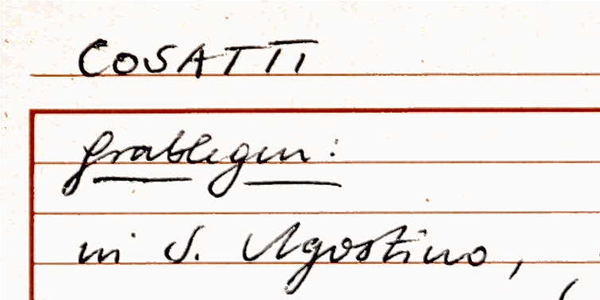 COSATTI
Grablegen:
in S. Agostino,